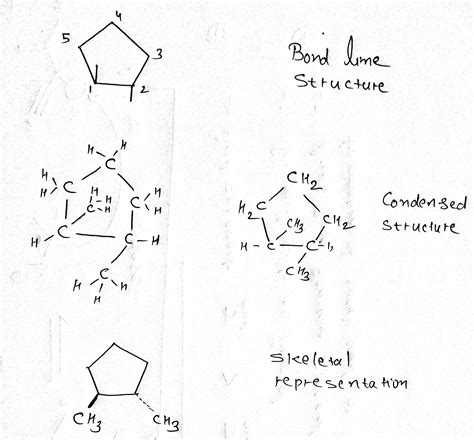 4
5
3
1
2
Bond line
Structure
H H
C
H C H
H H
C
C H H
H
H C
C - H
C
H H
H
CH2
H2C
CH2
CH3
H - C
C - H
CH3
Condensed
Structure
CH3
CH3
Skeletal
representation